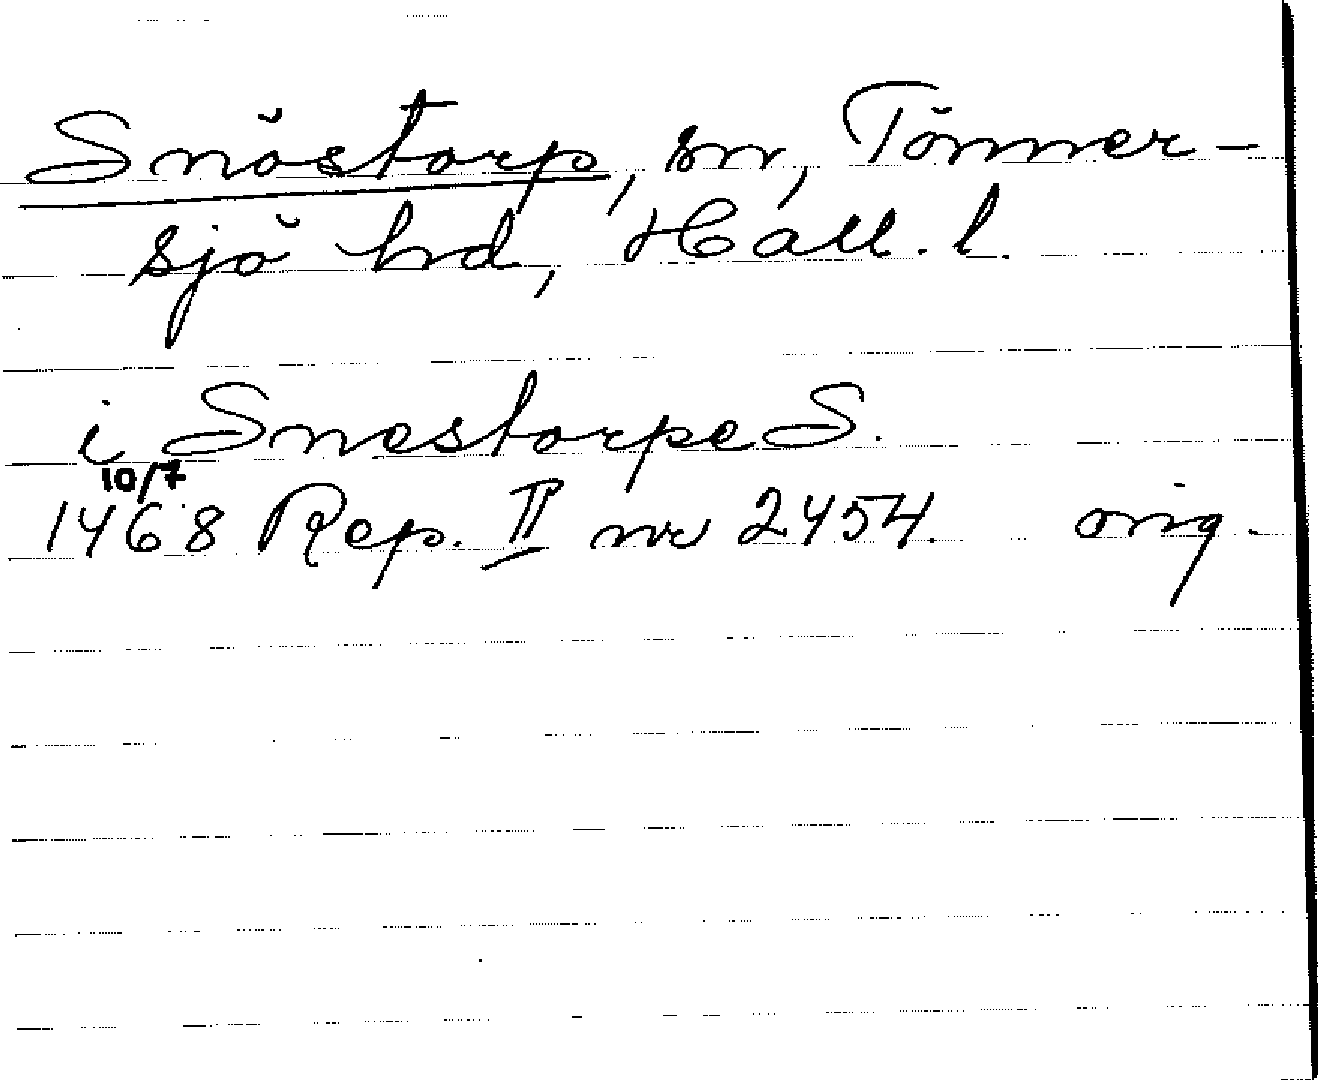 Snöstorp, sn, Tönner-
sjö hd, Hall. l.
i Snestorpe S.
10/7
1468 Rep. II nr 2454. orig.